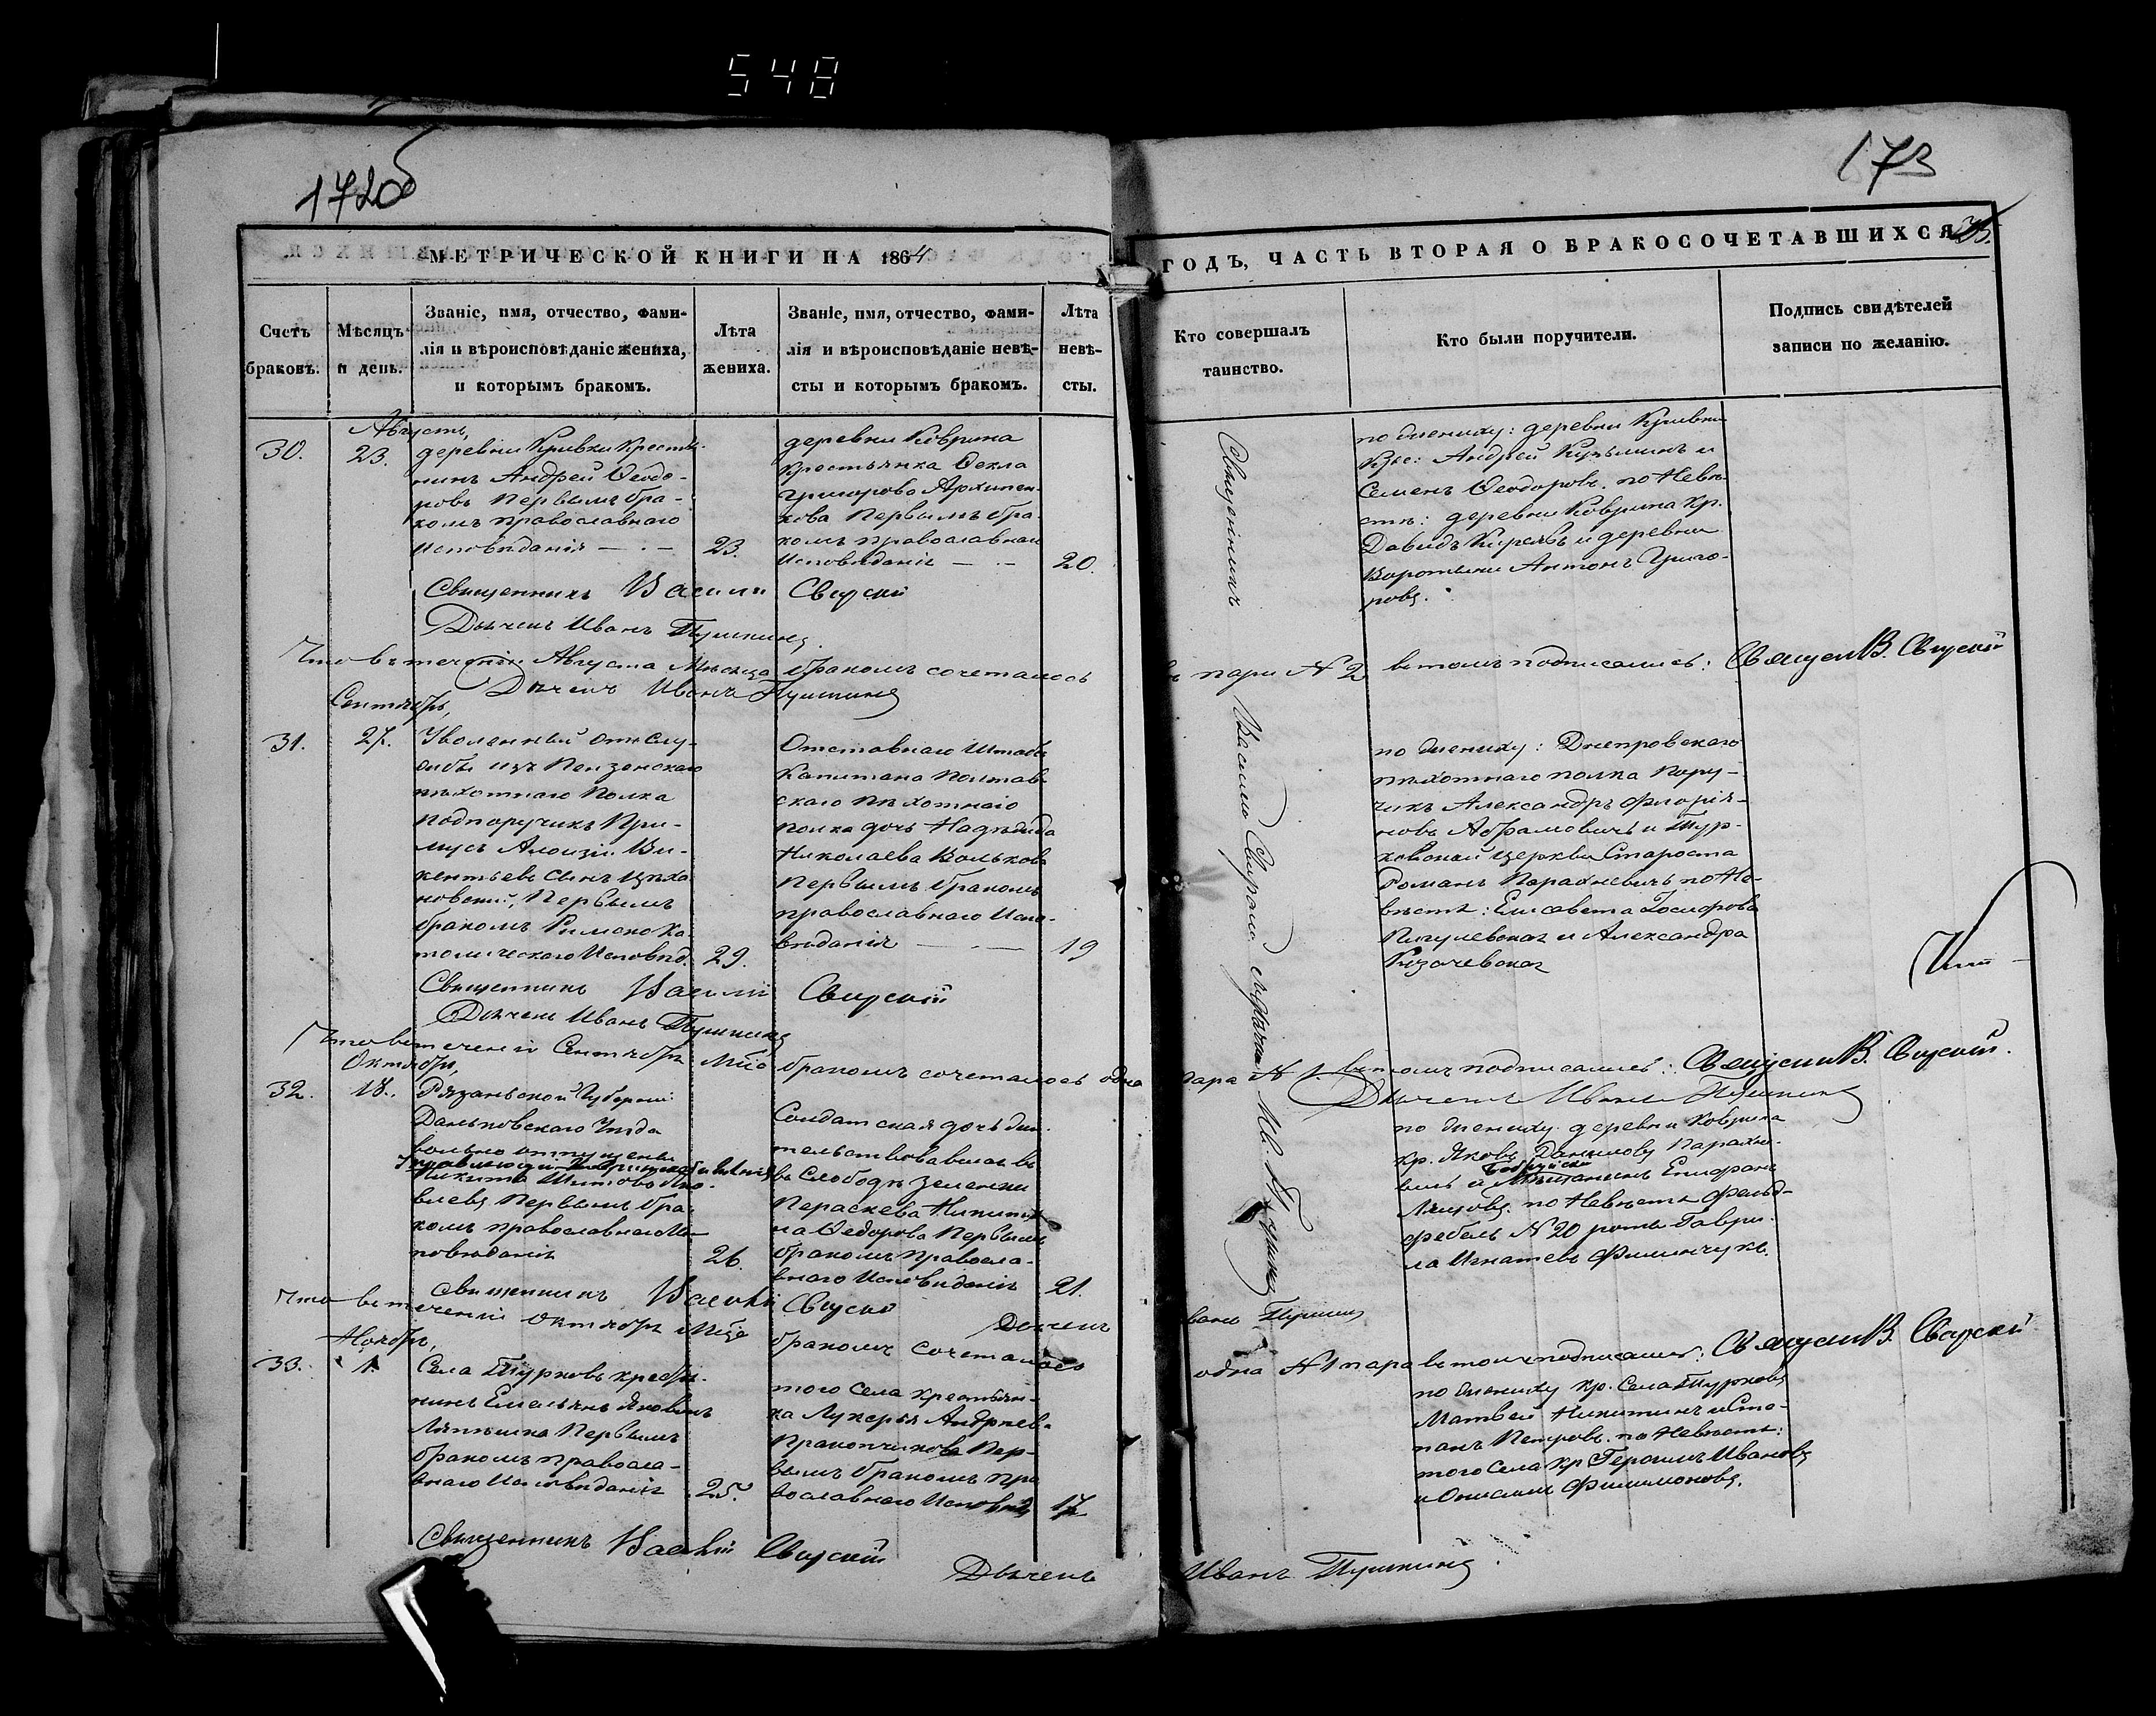 548
172об
173
МЕТРИЧЕСКОЙ КНИГИ НА 1864
ГОДЪ, ЧАСТЬ ВТОРАЯ О БРАКОСОЧЕТАВШИХСЯ
Счетъ
браковъ.
Мѣсяцъ
и день.
Званіе, имя, отчество, фами-
лія и вѣроисповѣданіе жениха,
и которымъ бракомъ.
Лѣта
жениха.
Званіе, имя, отчество, фами-
лія и вѣроисповѣданіе невѣ-
сты и которымъ бракомъ.
Лѣта
невѣ-
сты.
Кто совершалъ
таинство.
Кто были поручители.
Подпись свидѣтелей
записи по желанію.
30.
Августъ,
23.
деревни Кривки Крестья-
нинъ Андрей Ѳеодо-
ровъ Первымъ бра-
комъ православнаго
исповѣданія
23.
деревни Коврина
Крестьянка Ѳекла
Григорова Архипен-
кова Первымъ бра-
комъ православнаго
исповѣданія
20.
по жениху: деревни Кривки
Андрей Кузьминъ и
Семенъ Ѳеодоровъ. по Невѣ-
стѣ: деревни Коврина Кр.
Давидъ Киреевъ и деревни
Воротыни Антонъ Григо-
ровъ.
Священникъ Василій Свирскій
Дьячекъ Иванъ Пушкинъ
Что въ теченіи Августа Мѣсяца бракомъ сочеталось
пари N 2 въ томъ подписались: Священ В. Свирскій
Дьячекъ Иванъ Пушкинъ
Сентябрь,
31.
27.
Уволенный отъ слу-
жбы изъ Пензенскаго
пѣхотнаго Полка
Подпоручикъ При-
мусъ Алоизій Ви-
кентьевъ сынъ Цѣха-
новскій, Первымъ
бракомъ Римско Ка-
толическаго Исповѣд.
29.
Отставнаго Штабсъ
Капитана Полтав-
скаго Пѣхотнаго
полка дочь Надѣжда
Николаева Волькова
Первымъ бракомъ
православнаго Испо-
вѣданія
19
по жениху: Днепровскаго
пѣхотнаго полка Пору-
чикъ Александръ Флорія-
новъ Абрамовичъ и Тур-
ковской церкви Староста
Романъ Парахневичъ по Не-
вѣстѣ: Елисавета Іосифова
Пигулевская и Александра
Священникъ Василій Свирскій
Дьячекъ Иванъ Пушкинъ
Что въ теченіи Сентября Мѣсяца бракомъ сочеталось одна
пара N 1. въ томъ подписались: Священ В. Свирскій.
Дьячекъ Иванъ Пушкинъ
Октябрь,
32.
18.
Рязаньской Губерніи
Даньковскаго Уѣзда
вольно отпущенный
Никита Титовъ Яко-
влевъ Первымъ бра-
комъ православнаго Ис-
повѣданія
26.
Солдатская дочь жи-
тельствовавшая въ
въ Слободѣ Зеленки
Пераскева Никити-
на Ѳедорова Первымъ
бракомъ Правосла-
внаго Исповѣданія
21.
по жениху деревни Коврина
кр. Яковъ Даниловъ Парахне-
вичъ и Бобруйскій Мѣщанинъ Епифанъ
Ляховъ. по Невѣстѣ Фельд-
фебель N 20 роты Гаври-
ла Игнатевъ Филинчукъ.
Священникъ Василій Свирскій
Дьячекъ Иванъ Пушкинъ
Что въ теченіи Октября Мѣсяца бракомъ сочеталось
одна N 1 пара въ томъ подписались: Священ В. Свирскій
Ноябрь,
33.
1.
Села Турковъ крестья-
нинъ Емельянъ Яковлевъ
Первымъ
бракомъ правосла-
внаго Исповѣданія
25.
того Села крестьян-
ка Лукерья Андреева
Пракопчикова Пер-
вымъ бракомъ пра-
вославнаго Исповѣд.
17
по жениху кр. Села Турковъ
Матвей Никитинъ и Сте-
панъ Петровъ. по Невѣстѣ:
того Села кр Герасимъ Ивановъ
и Онисимъ Филимоновъ.
Священникъ Василій Свирскій
Дьячекъ Иванъ Пушкинъ